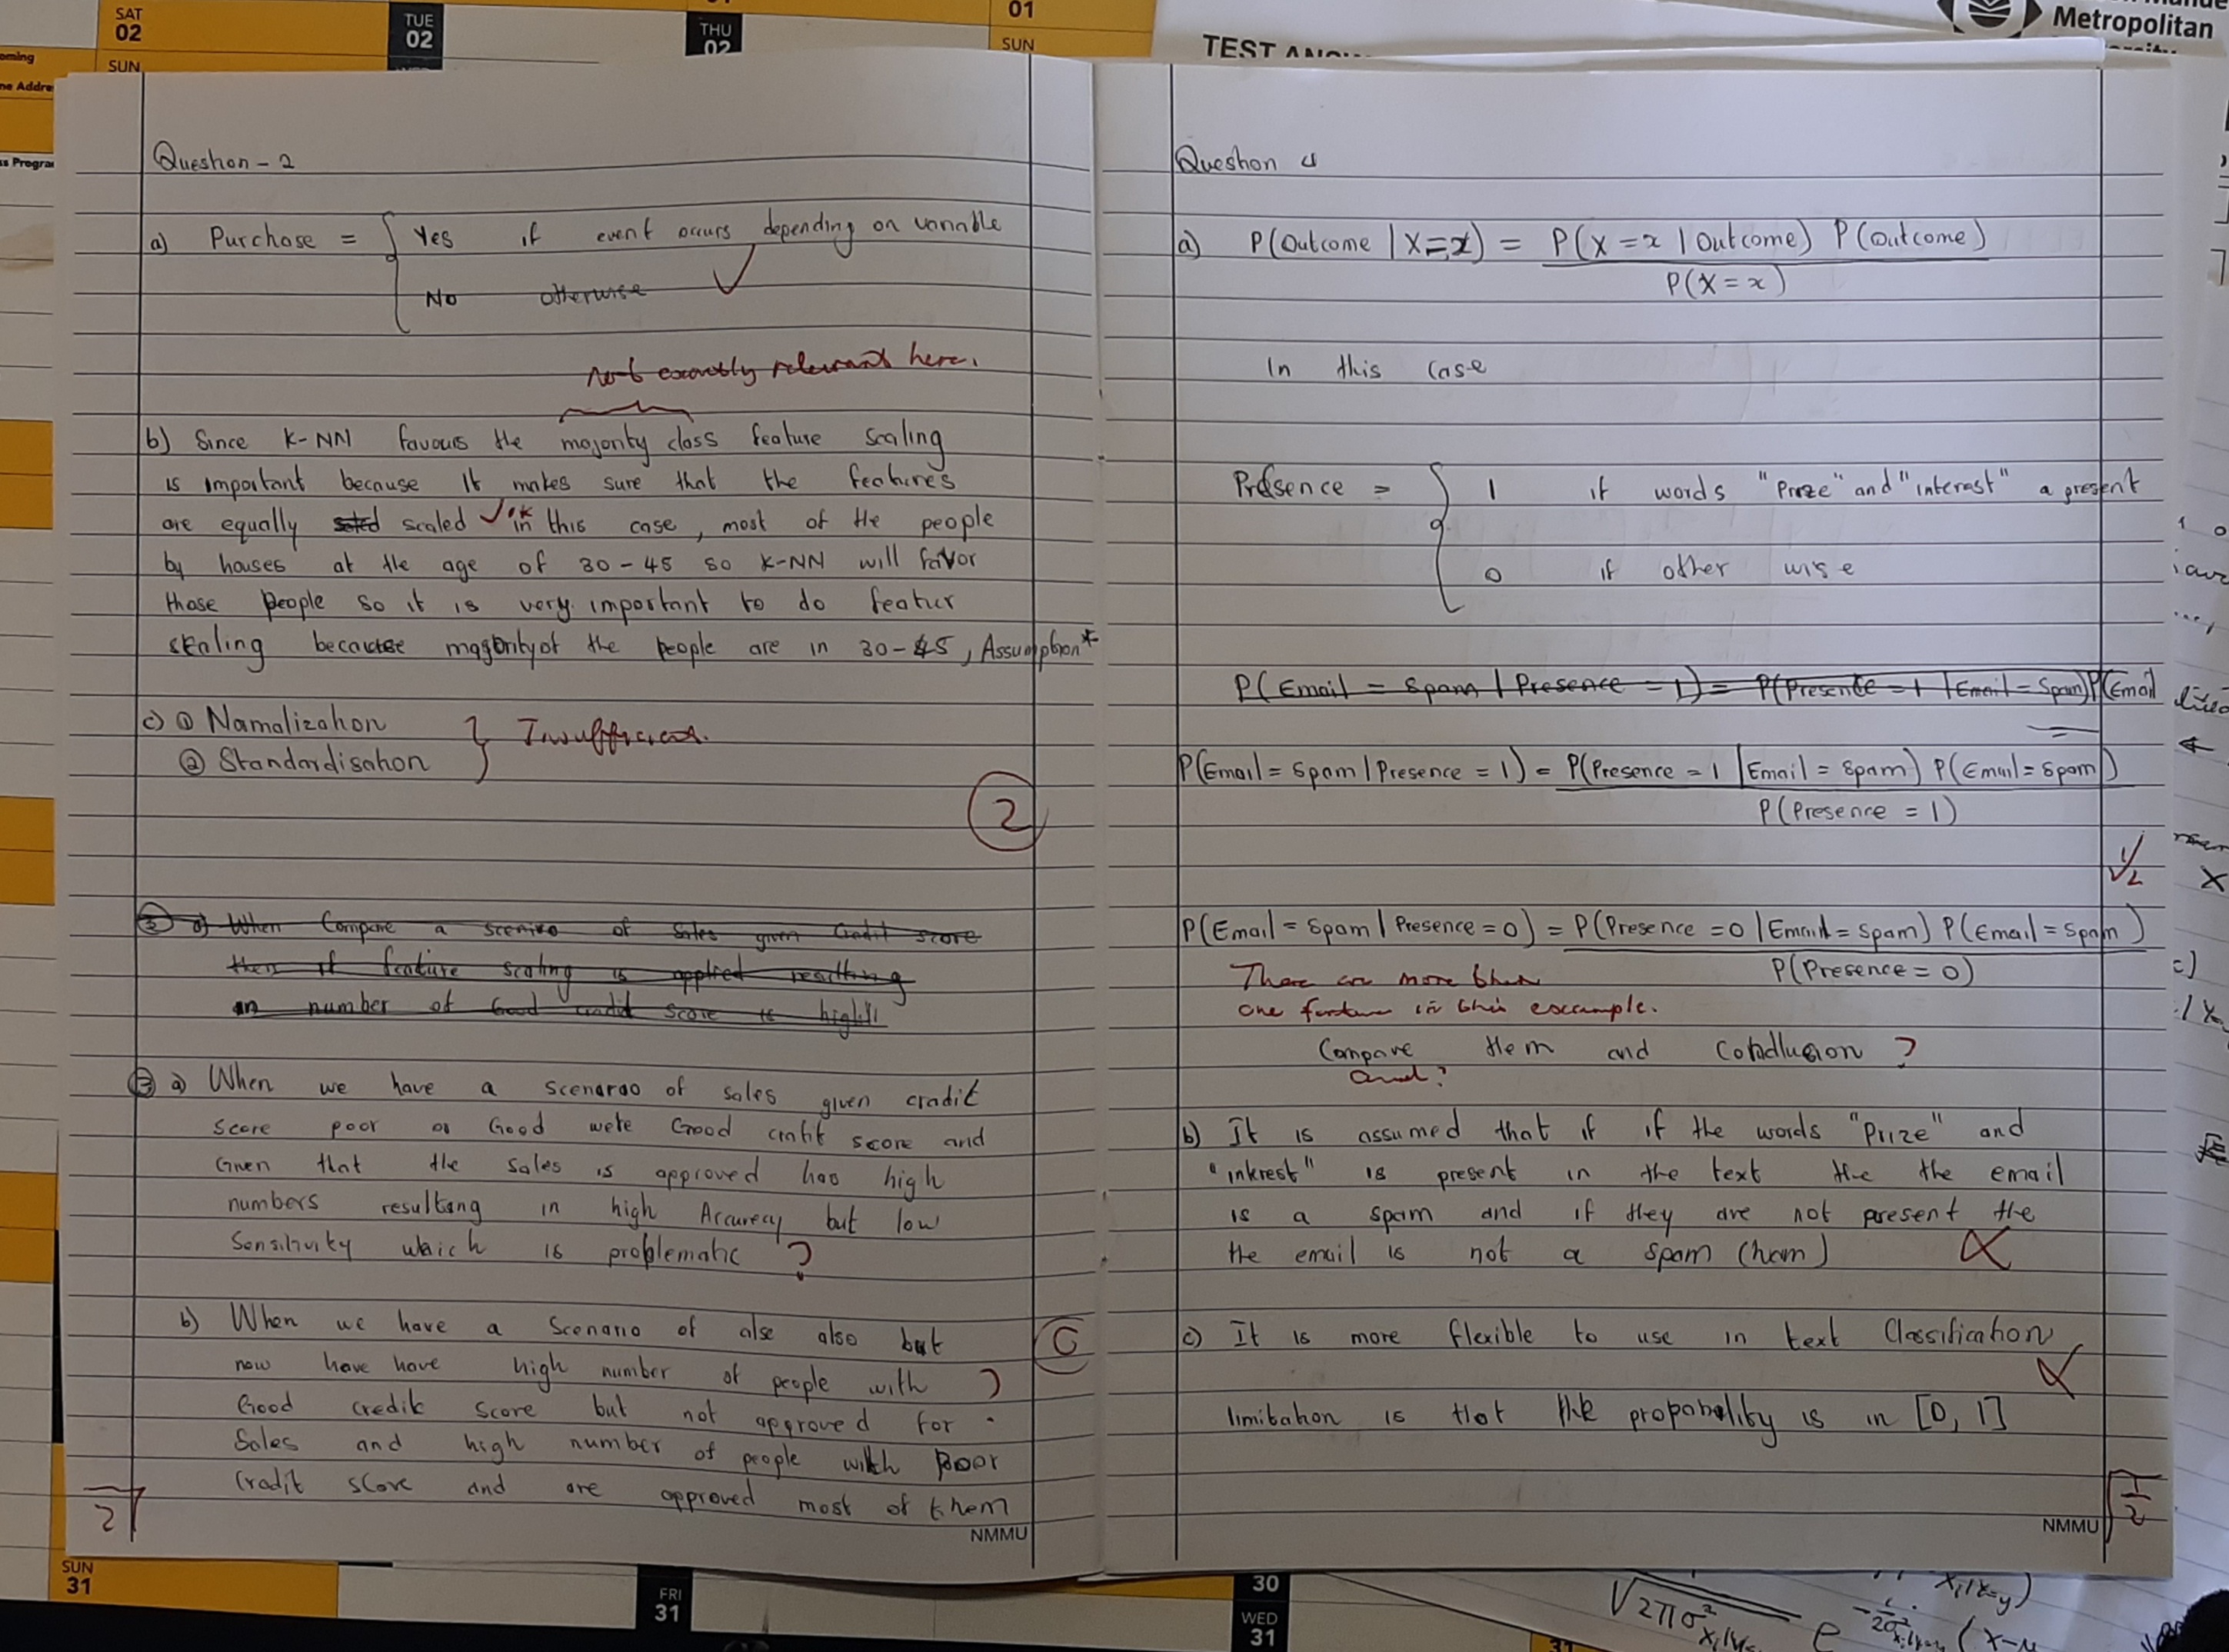 SAT
02
SUN
TUE
02
THU
02
01
SUN
TEST
Metropolitan
oming
ne Addre
ss Progra
Question - 2
a) Purchase = { Yes if event occurs depending on variable
No otherwise
Not exactly relevant here.
b) Since K-NN favours the majority class feature scaling
is important because it makes sure that the features
are equally scaled ok in this case, most of the people
by houses at the age of 30-45 so K-NN will favor
those people so it is very important to do featur
scaling because majority of the people are in 30-45, Assumption*
c) ① Namalization
② Standardisation } Insufficient.
2
③ a) When Compare a scenrio of Sales given Credit score
then if feature scaling is applied resulting
in number of Good credit score is high
③ a) When we have a scenarao of sales given cradit
score poor or Good wete Good cratit score and
Given that the sales is approved has high
numbers resultang in high Accuracy but low
Sensitivity which is problematic ?
b) When we have a Scenario of alse also but
now have have high number of people with ?
Good credit score but not approved for
Sales and high number of people with poor
Cradit score and are approved most of them
0
2
NMMU
Question 4
a) P(Outcome | X=x) = P(X=x | Outcome) P(Outcome)
P(X=x)
In this case
Presence = { 1 if words "Prize" and "interest" a present
0 if other wise
P(Email = Spam | Presence = 1) = P(Presence = 1 | Email = Spam) P(Email
=
P(Email = Spam | Presence = 1) = P(Presence = 1 | Email = Spam) P(Email = Spam)
P(Presence = 1)
½
P(Email = Spam | Presence = 0) = P(Presence = 0 | Email = Spam) P(Email = Spam)
P(Presence = 0)
There are more than
one feature in this example.
Compare them and Condlusion ?
and?
b) It is assumed that if if the words "Prize" and
"inkrest" is present in the text the the email
is a spam and if they are not present the
the email is not a spam (ham)
c) It is more flexible to use in text Classification
limitation is that the propobality is in [0, 1]
NMMU
SUN
31
FRI
31
30
WED
31